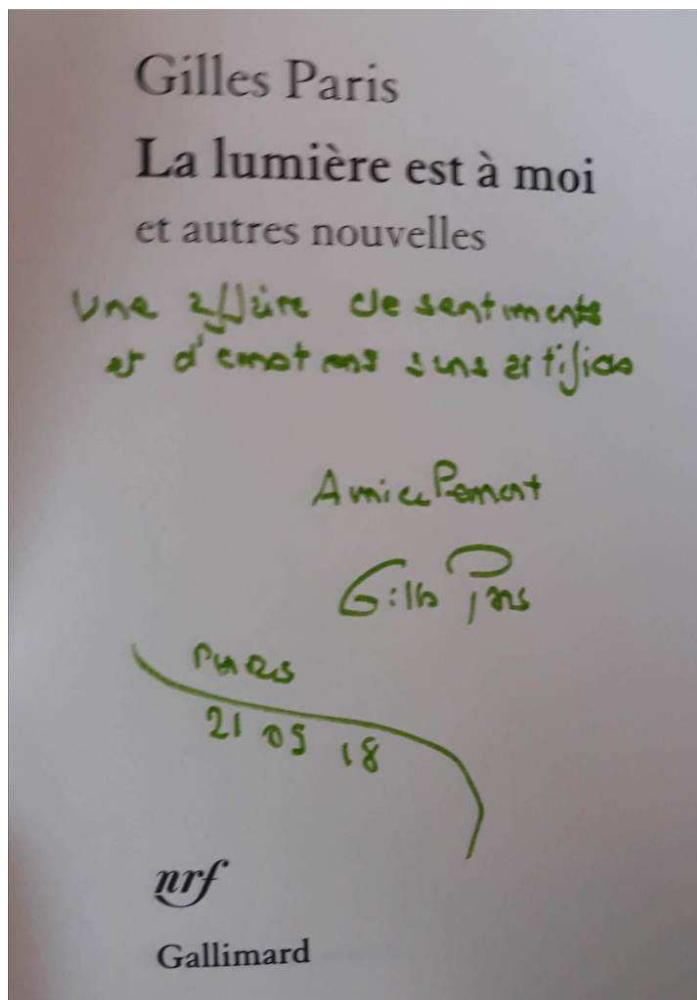 Gilles Paris
La lumière est à moi
et autres nouvelles
Une affaire de sentiments
et d'émotions sans artifices
Amicalement
Gilles Paris
Paris
21 05 18
nrf
Gallimard